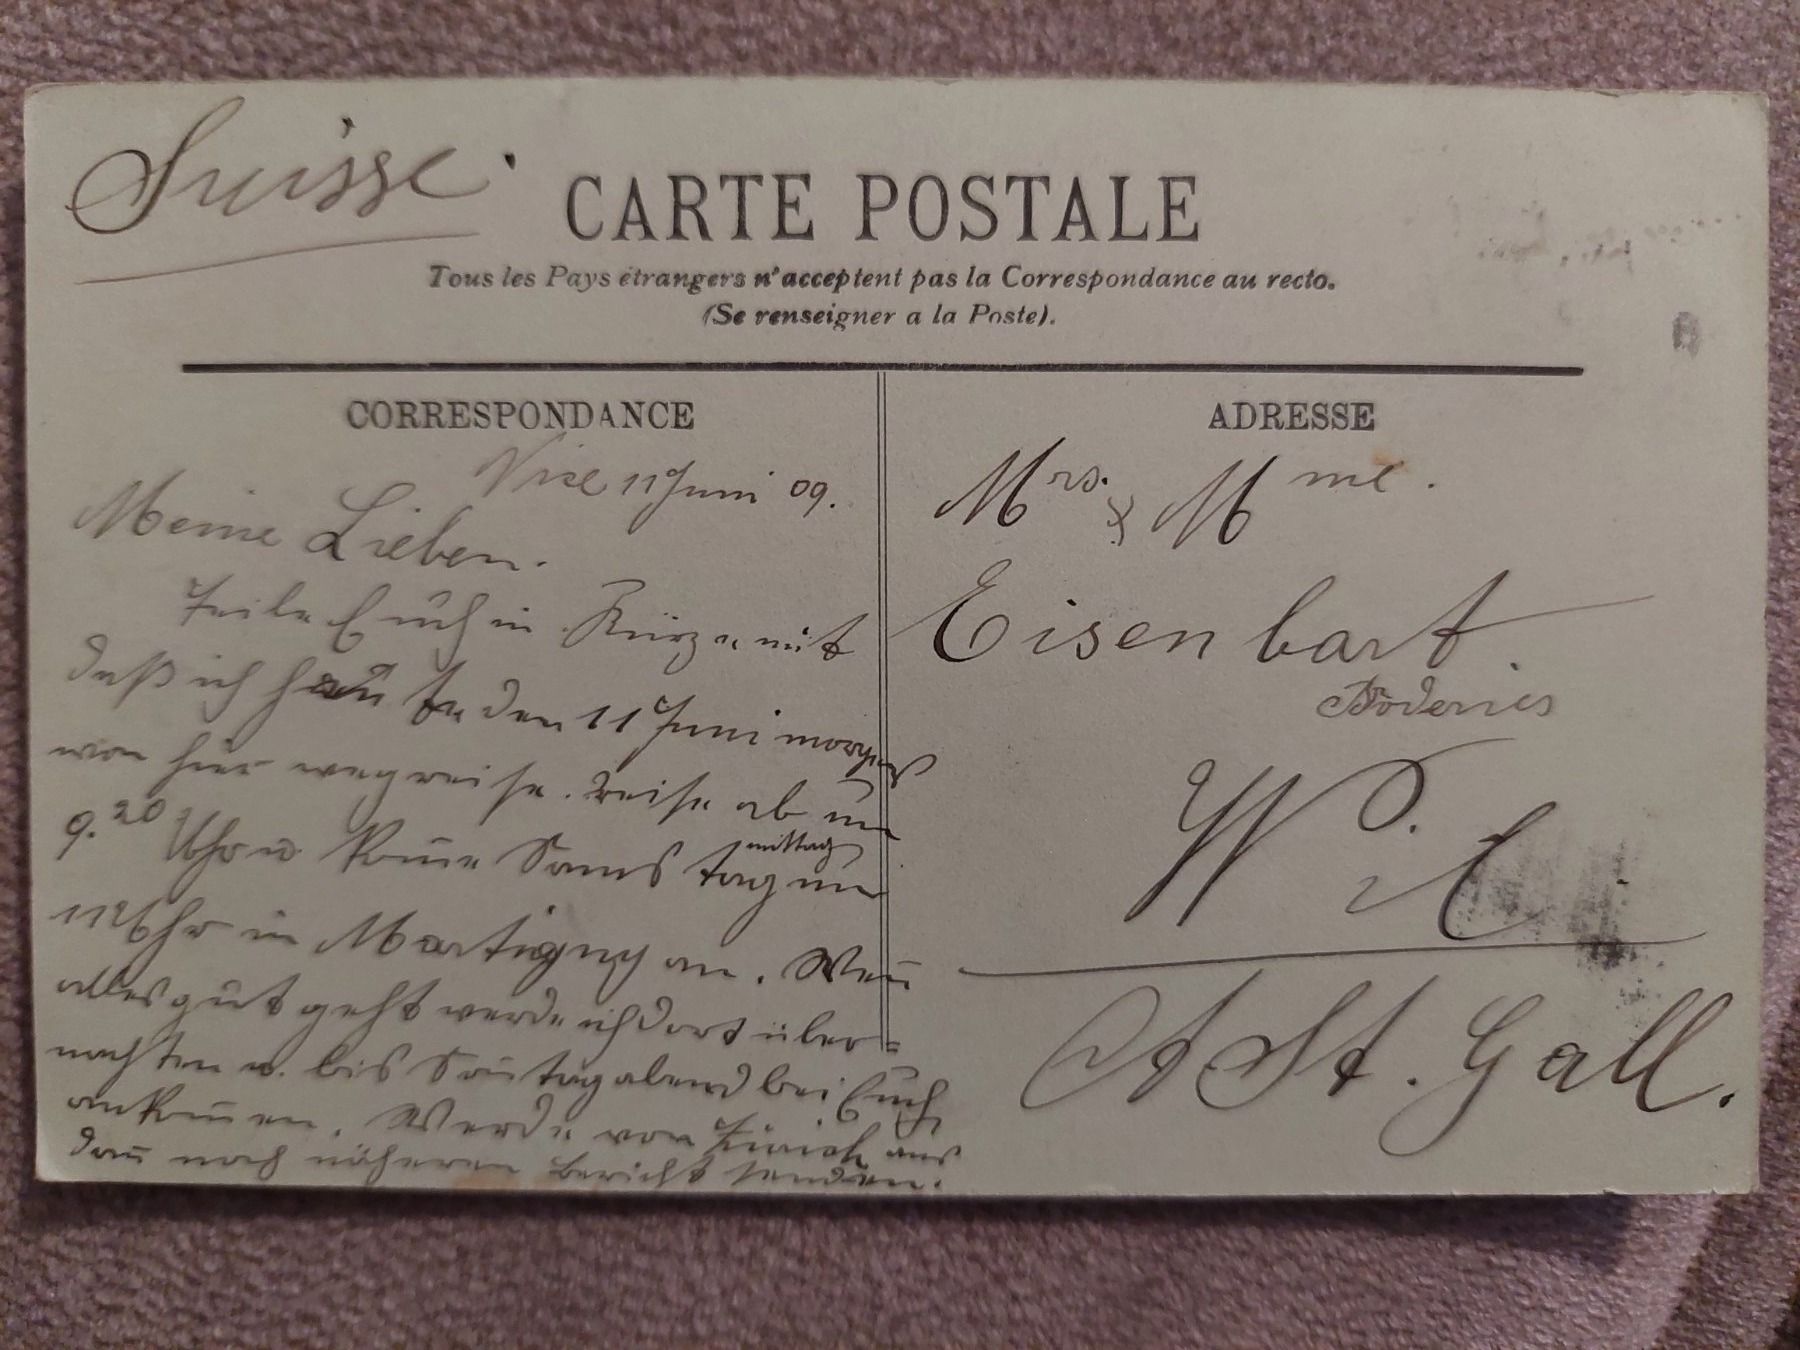 Suisse.
CARTE POSTALE
Tous les Pays étrangers n'acceptent pas la Correspondance au recto.
(Se renseigner a la Poste).
CORRESPONDANCE
Nice 11 Juni 09.
Meine Lieben.
Teile Euch in Kürze mit
daß ich heute den 11 Juni morgens
von hier wegreise. reise ab um
9.20 Uhr u. komme Samstag mittag um
Uhr in Martigny an. Wenn
alles gut geht werde ich dort über=
nachten u. bis Sonntag abend bei Euch
ankommen. Werde von Zürich aus
dann noch näheren Bericht senden.
ADRESSE
Mrs. & Mme.
Eisenbart.
Wil
St. Gall.